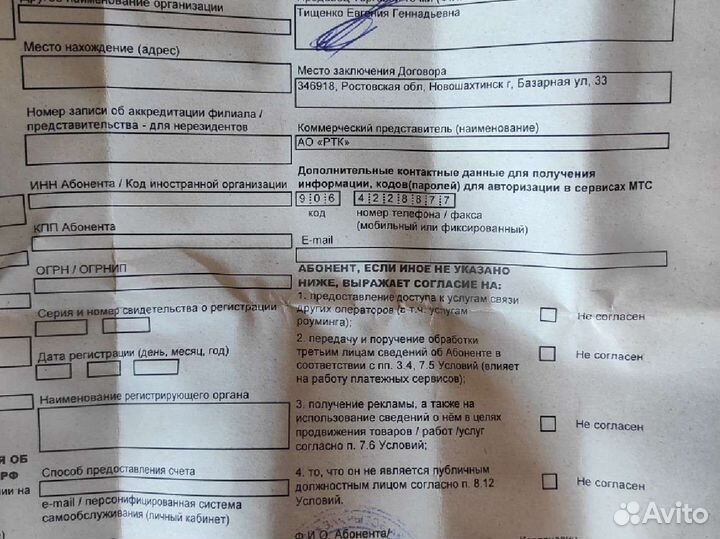 Другое наименование организации
Место нахождение (адрес)
Номер записи об аккредитации филиала /
представительства - для нерезидентов
ИНН Абонента / Код иностранной организации
КПП Абонента
ОГРН / ОГРНИП
Серия и номер свидетельства о регистрации
Дата регистрации (день, месяц, год)
Наименование регистрирующего органа
Способ предоставления счета
e-mail / персонифицированная система
самообслуживания (личный кабинет)
Тищенко Евгения Геннадьевна
Место заключения Договора
346918, Ростовская обл, Новошахтинск г, Базарная ул, 33
Коммерческий представитель (наименование)
АО «РТК»
Дополнительные контактные данные для получения
информации, кодов(паролей) для авторизации в сервисах МТС
906 4228877
код номер телефона / факса
(мобильный или фиксированный)
E-mail
АБОНЕНТ, ЕСЛИ ИНОЕ НЕ УКАЗАНО
НИЖЕ, ВЫРАЖАЕТ СОГЛАСИЕ НА:
1. предоставление доступа к услугам связи
других операторов (в т.ч. услугам
роуминга);
Не согласен
2. передачу и поручение обработки
третьим лицам сведений об Абоненте в
соответствии с пп. 3.4, 7.5 Условий (влияет
на работу платежных сервисов);
Не согласен
3. получение рекламы, а также на
использование сведений о нём в целях
продвижения товаров / работ /услуг
согласно п. 7.6 Условий;
Не согласен
4. то, что он не является публичным
должностным лицом согласно п. 8.12
Условий.
Не согласен
Я ОБ
РФ
ии на
Ф.И.О. Абонента/
Avito